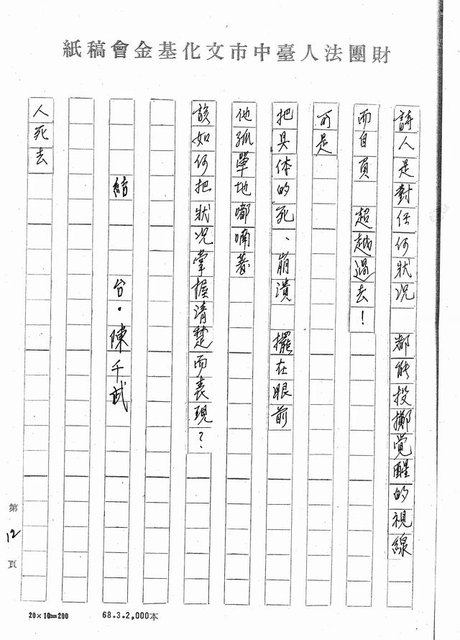 財團法人臺中市文化基金會稿紙
詩人是對任何狀況　都能投擲覺醒的視線
而自負　超越過去！
可是
把具体的死、崩潰　擺在眼前
他孤單地嘟喃著
該如何把狀況掌握清楚而表現？
結　台・陳千武
人死去
第12頁
20×10=200　68.3.2,000本